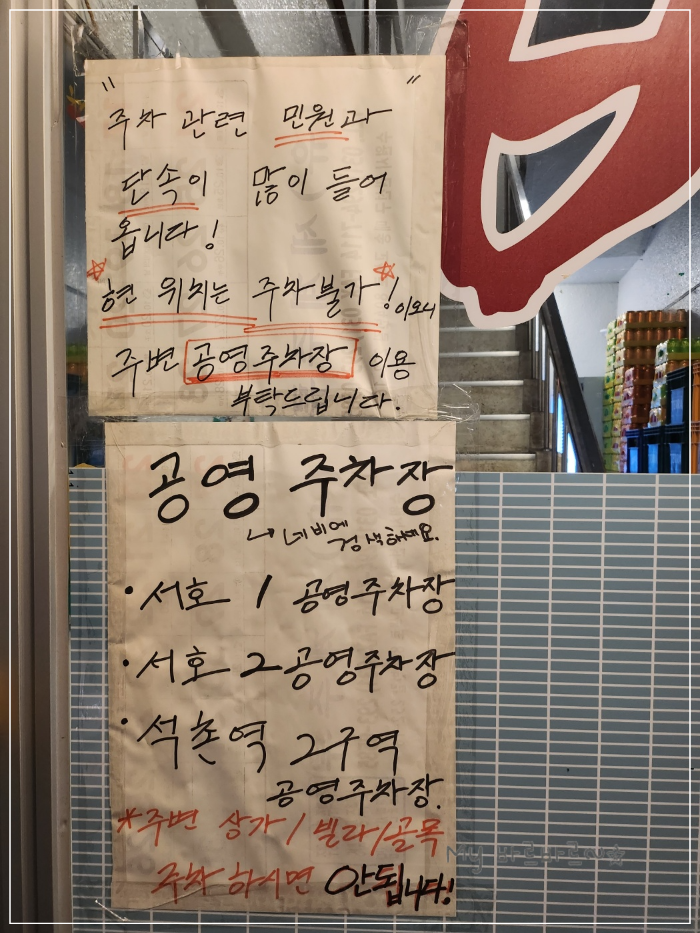 " "
주차 관련 민원과
단속이 많이 들어
옵니다!
☆현 위치는 주차불가!☆ 이오니
주변 공영주차장 이용
부탁드립니다.
공영 주차장
↳ 네비에
검색하세요.
• 서호 1 공영주차장
• 서호 2 공영주차장
• 석촌역 2구역
공영주차장.
*주변 상가/빌라/골목
주차 하시면 안됩니다!